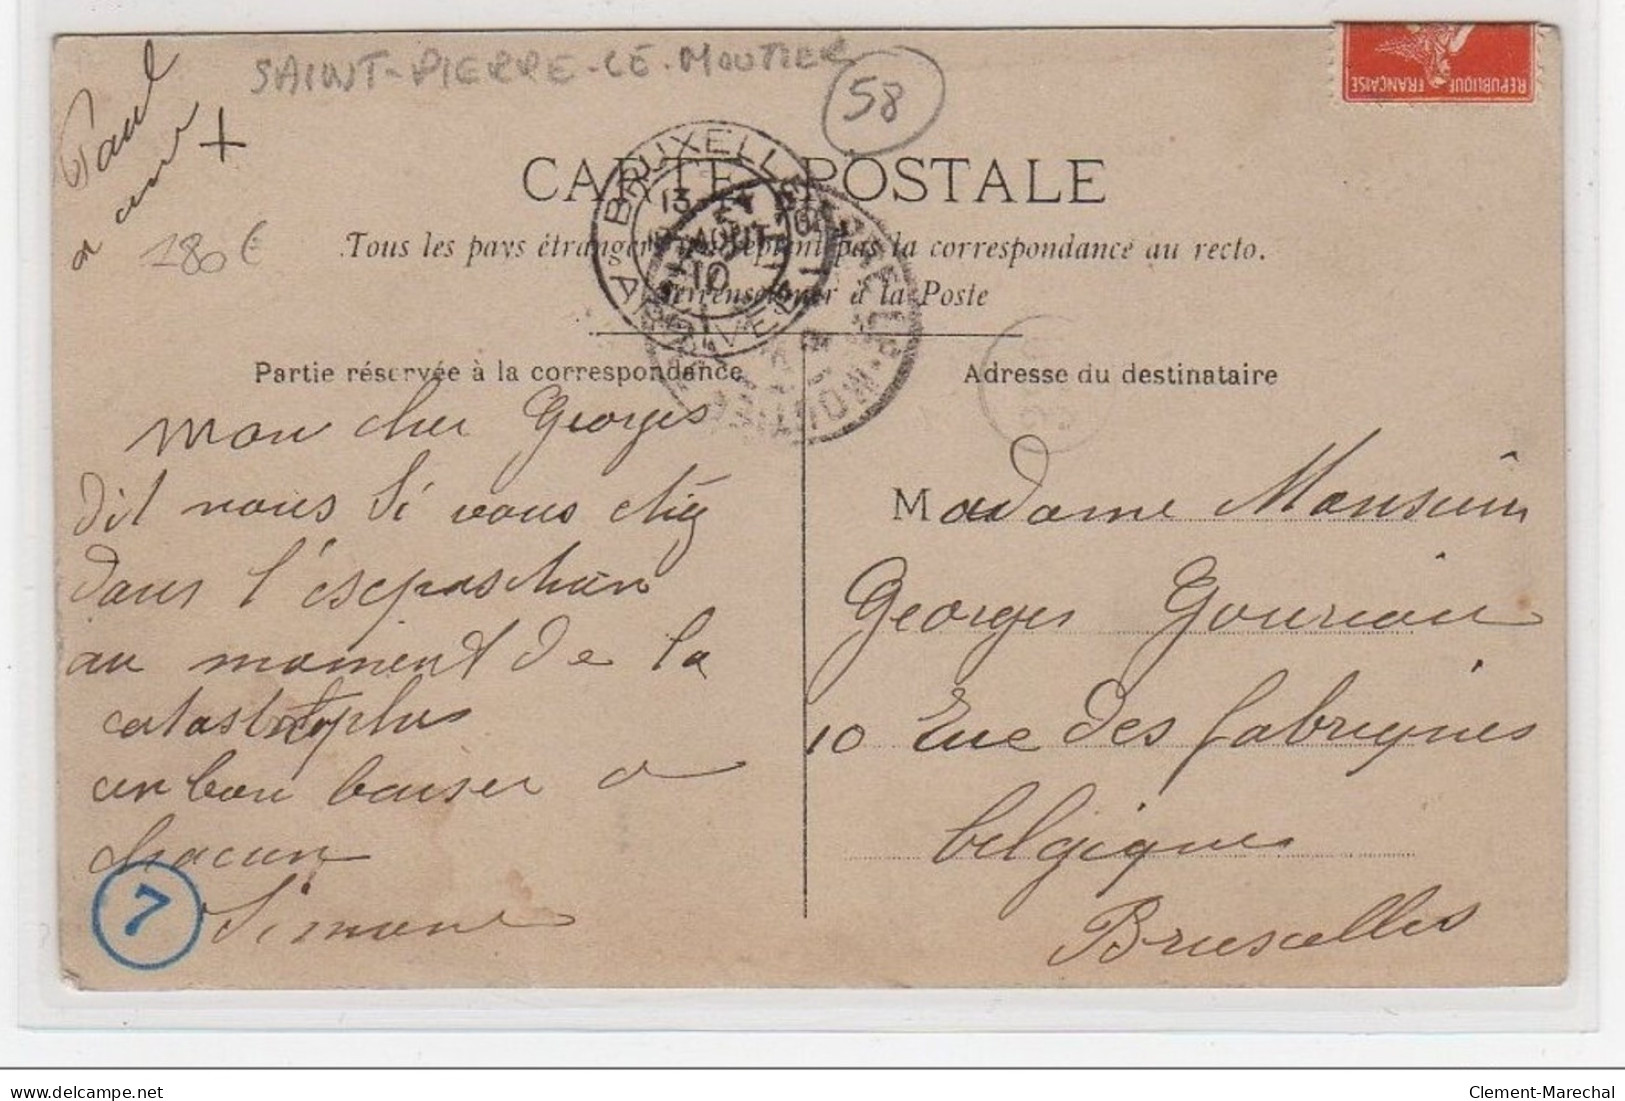 SAINT-PIERRE-LE-MOUTIER
58
Paul
+
180€
CARTE POSTALE
Tous les pays étrangers n'acceptent pas la correspondance au recto.
Se renseigner à la Poste
BRUXELLES
ARRIVEE
13
AOUT
10
MOUTIER
REPUBLIQUE FRANÇAISE
Partie réservée à la correspondance
Adresse du destinataire
Mon cher Georges
dit nous si vous étiez
dans l'exposition
au moment de la
catastrophe
un bon baiser a
chacun
Simone
7
Madame Monsieur
Georges Gouriau
10 Rue des fabriques
belgiques
Bruxelles
delcampe.net
Clement-Marechal